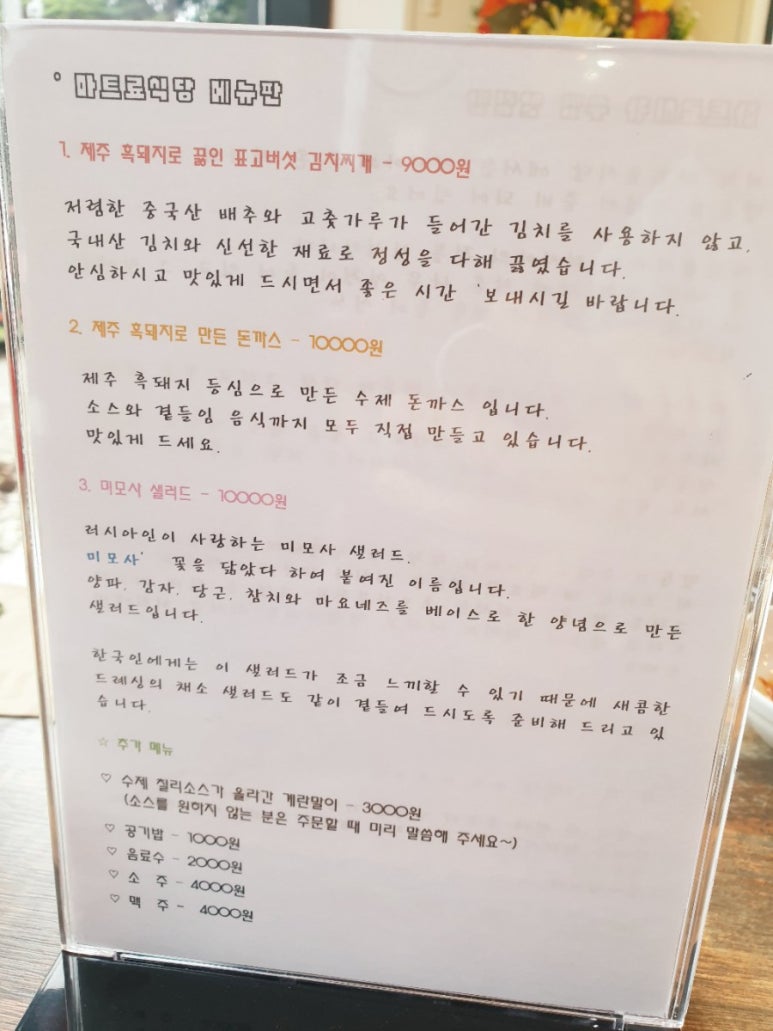 ° 마트료식당 메뉴판
1. 제주 흑돼지로 끓인 표고버섯 김치찌개 - 9000원
저렴한 중국산 배추와 고춧가루가 들어간 김치를 사용하지 않고,
국내산 김치와 신선한 재료로 정성을 다해 끓였습니다.
안심하시고 맛있게 드시면서 좋은 시간 '보내시길 바랍니다.
2. 제주 흑돼지로 만든 돈까스 - 10000원
제주 흑돼지 등심으로 만든 수제 돈까스 입니다.
소스와 곁들임 음식까지 모두 직접 만들고 있습니다.
맛있게 드세요.
3. 미모사 샐러드 - 10000원
러시아인이 사랑하는 미모사 샐러드.
미모사' 꽃을 닮았다 하여 붙여진 이름입니다.
양파, 감자, 당근, 참치와 마요네즈를 베이스로 한 양념으로 만든
샐러드입니다.
한국인에게는 이 샐러드가 조금 느끼할 수 있기 때문에 새콤한
드레싱의 채소 샐러드도 같이 곁들여 드시도록 준비해 드리고 있
습니다.
☆ 추가 메뉴
♡ 수제 칠리소스가 올라간 계란말이 - 3000원
(소스를 원하지 않는 분은 주문할 때 미리 말씀해 주세요~)
♡ 공기밥 - 1000원
♡ 음료수 - 2000원
♡ 소 주 - 4000원
♡ 맥 주 - 4000원